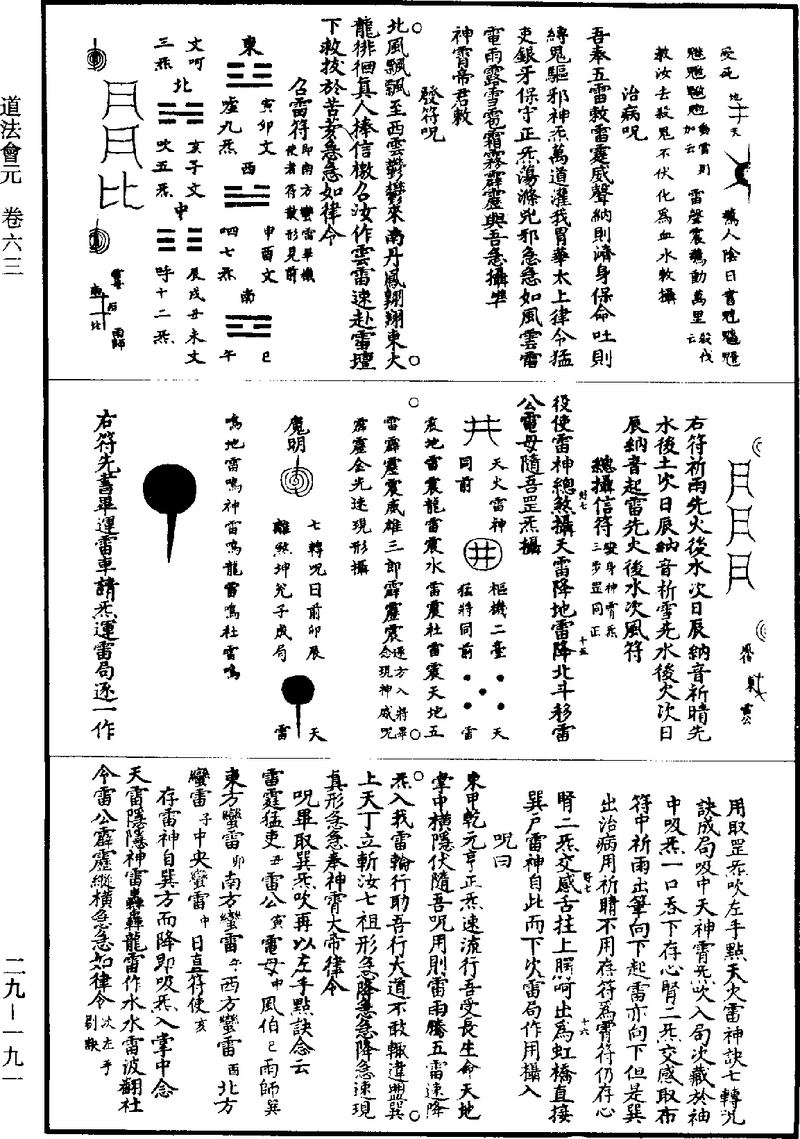 道法會元　卷六三
二九—一九一
受死
地
天
萬人陰日書
雷聲震萬動萬里
教汝去殺鬼不伏化為血水敕攝
治病呪
吾奉五雷敕雷霆威聲納則濟身保命吐則
縛鬼驅邪神炁萬道灌我胃華太上律令猛
吏銀牙保守正炁蕩滌兇邪急急如風雲雷
雨電露雪雹霜霧霹靂與吾急攝準
神霄帝君敕
發符呪
北風飄飄至西雲鬱鬱來南丹鳳翺翺東火
龍徘徊真人捧信檄召汝作雲雷速赴雷壇
下救拔於苦荄急急如律令
召雷符即南方蠻雷畢機使者符敕形見前
東
寅卯文
虛九炁
西
申酉文
呬七炁
南
巳
午
文呵
三炁
北
亥子文
吹五炁
中
辰戌丑未文
呼十二炁
雨師
右符祈雨先火後水次日辰納音祈晴先
水後土次日辰納音祈雪先水後火次日
辰納音起雷先火後水次風符
總攝信符變身神霄炁三步罡同正
役使雷神總煞攝天雷降地雷降北斗移雷
公電母隨吾罡炁攝
天火雷神
同前
樞機二臺
猛將同前
天
雷
震地雷震龍雷震水雷震社雷震天地五
雷霹靂震威雄三郎霹靂震逐方入將畢念現神威呪
霹靂金光速現形攝
魔明
七轉呪曰前卯辰
離煞坤兌子成局
天
雷
鳴地雷鳴神雷鳴龍雷鳴社雷鳴
右符先書畢運雷車請炁運雷局逐一作
用取罡炁吹左手點天火雷神訣七轉呪
訣成局吸中天神霄炁吹入局次藏於袖
中吸炁一口吞下存心腎二炁交感取布
符中祈雨出筆向下起雷亦向下但是巽
出治病用祈晴不用存符為霄符仍存心
腎二炁交感舌拄上腭呵出為虹橋直接
巽戶雷神自此而下次雷局作用攝入
呪曰
東甲乾元亨正炁速流行吾受長生命天地
掌中橫隱伏隨吾呪用則雷雨騰五雷速降
炁入我雷輪行助吾行大道不敢輙違盟巽
上天丁立斬汝七祖形急降急急降急速現
真形急急奉神霄大帝律令
呪畢取巽炁吹再以左手點訣念云
雷霆猛吏丑雷公寅電母中風伯巳雨師箕
東方蠻雷卯南方蠻雷午西方蠻雷酉北方
蠻雷子中央蠻雷中日直符使亥
存雷神自巽方而降即吸炁入掌中念
天雷隱隱神雷轟轟龍雷作水水雷波翻社
令雷公霹靂縱橫急急如律令次左手剔訣